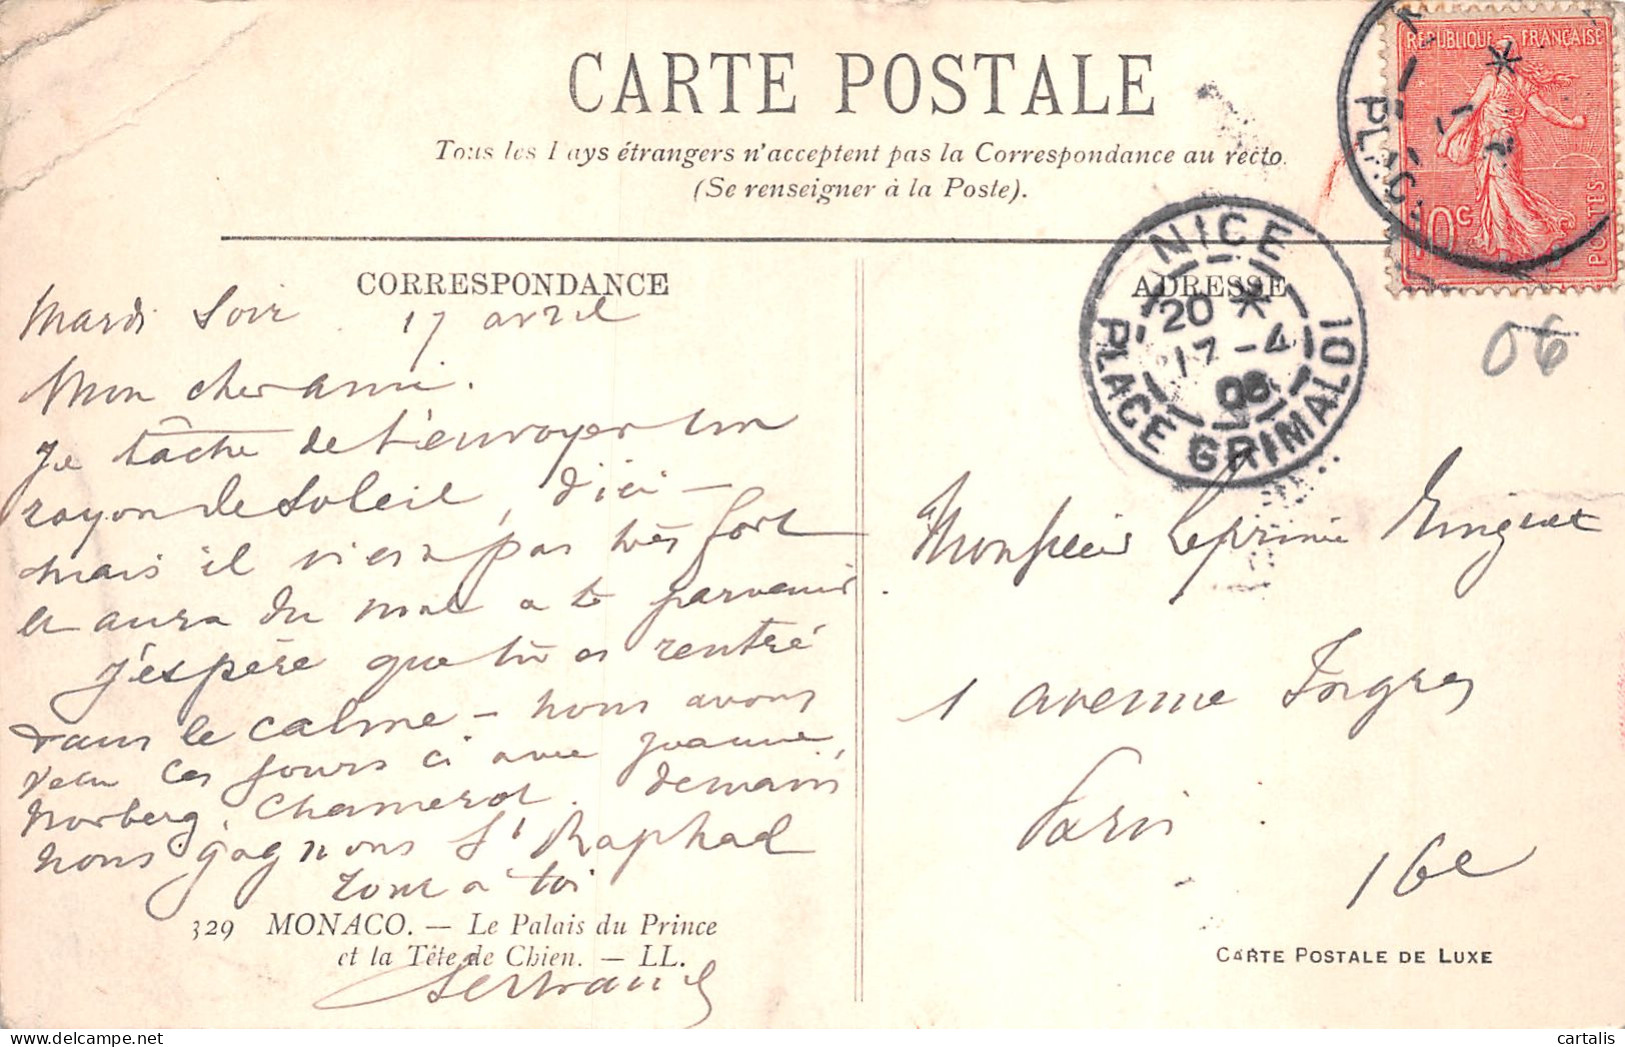 CARTE POSTALE
Tous les Pays étrangers n'acceptent pas la Correspondance au recto.
(Se renseigner à la Poste).
REPUBLIQUE FRANÇAISE
10c
POSTES
PLACE
NICE
20 *
17 - 4
06
PLACE GRIMALDI
06
CORRESPONDANCE
Mardi soir 17 avril
Mon cher ami.
Je tâche de t'envoyer un
rayon de soleil, d'ici -
mais il vient pas très fort
et aura du mal a te parvenir.
J'espère que tu es rentré
dans le calme - nous avons
vu ces jours ci avec Jeanne,
Norberg, Chamerot. demain
nous gagnons St Raphael
tout a toi
Bertrand
329 MONACO. — Le Palais du Prince
et la Tête de Chien. — LL.
ADRESSE
Monsieur Leprince Ringuet
1 avenue Ingres
Paris
16e
CARTE POSTALE DE LUXE
cartalis
delcampe.net